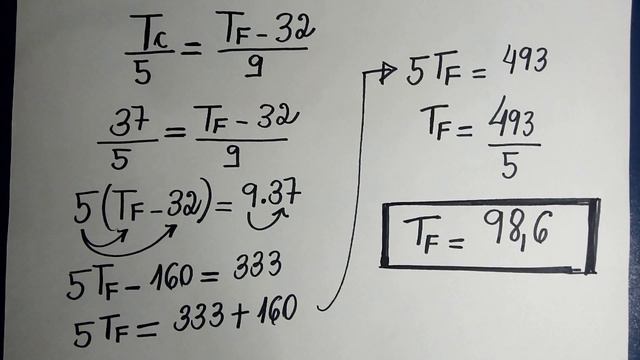 Tc/5 = TF - 32/9
37/5 = TF - 32/9
5(TF - 32) = 9.37
5TF - 160 = 333
5TF = 333 + 160
5TF = 493
TF = 493/5
TF = 98,6